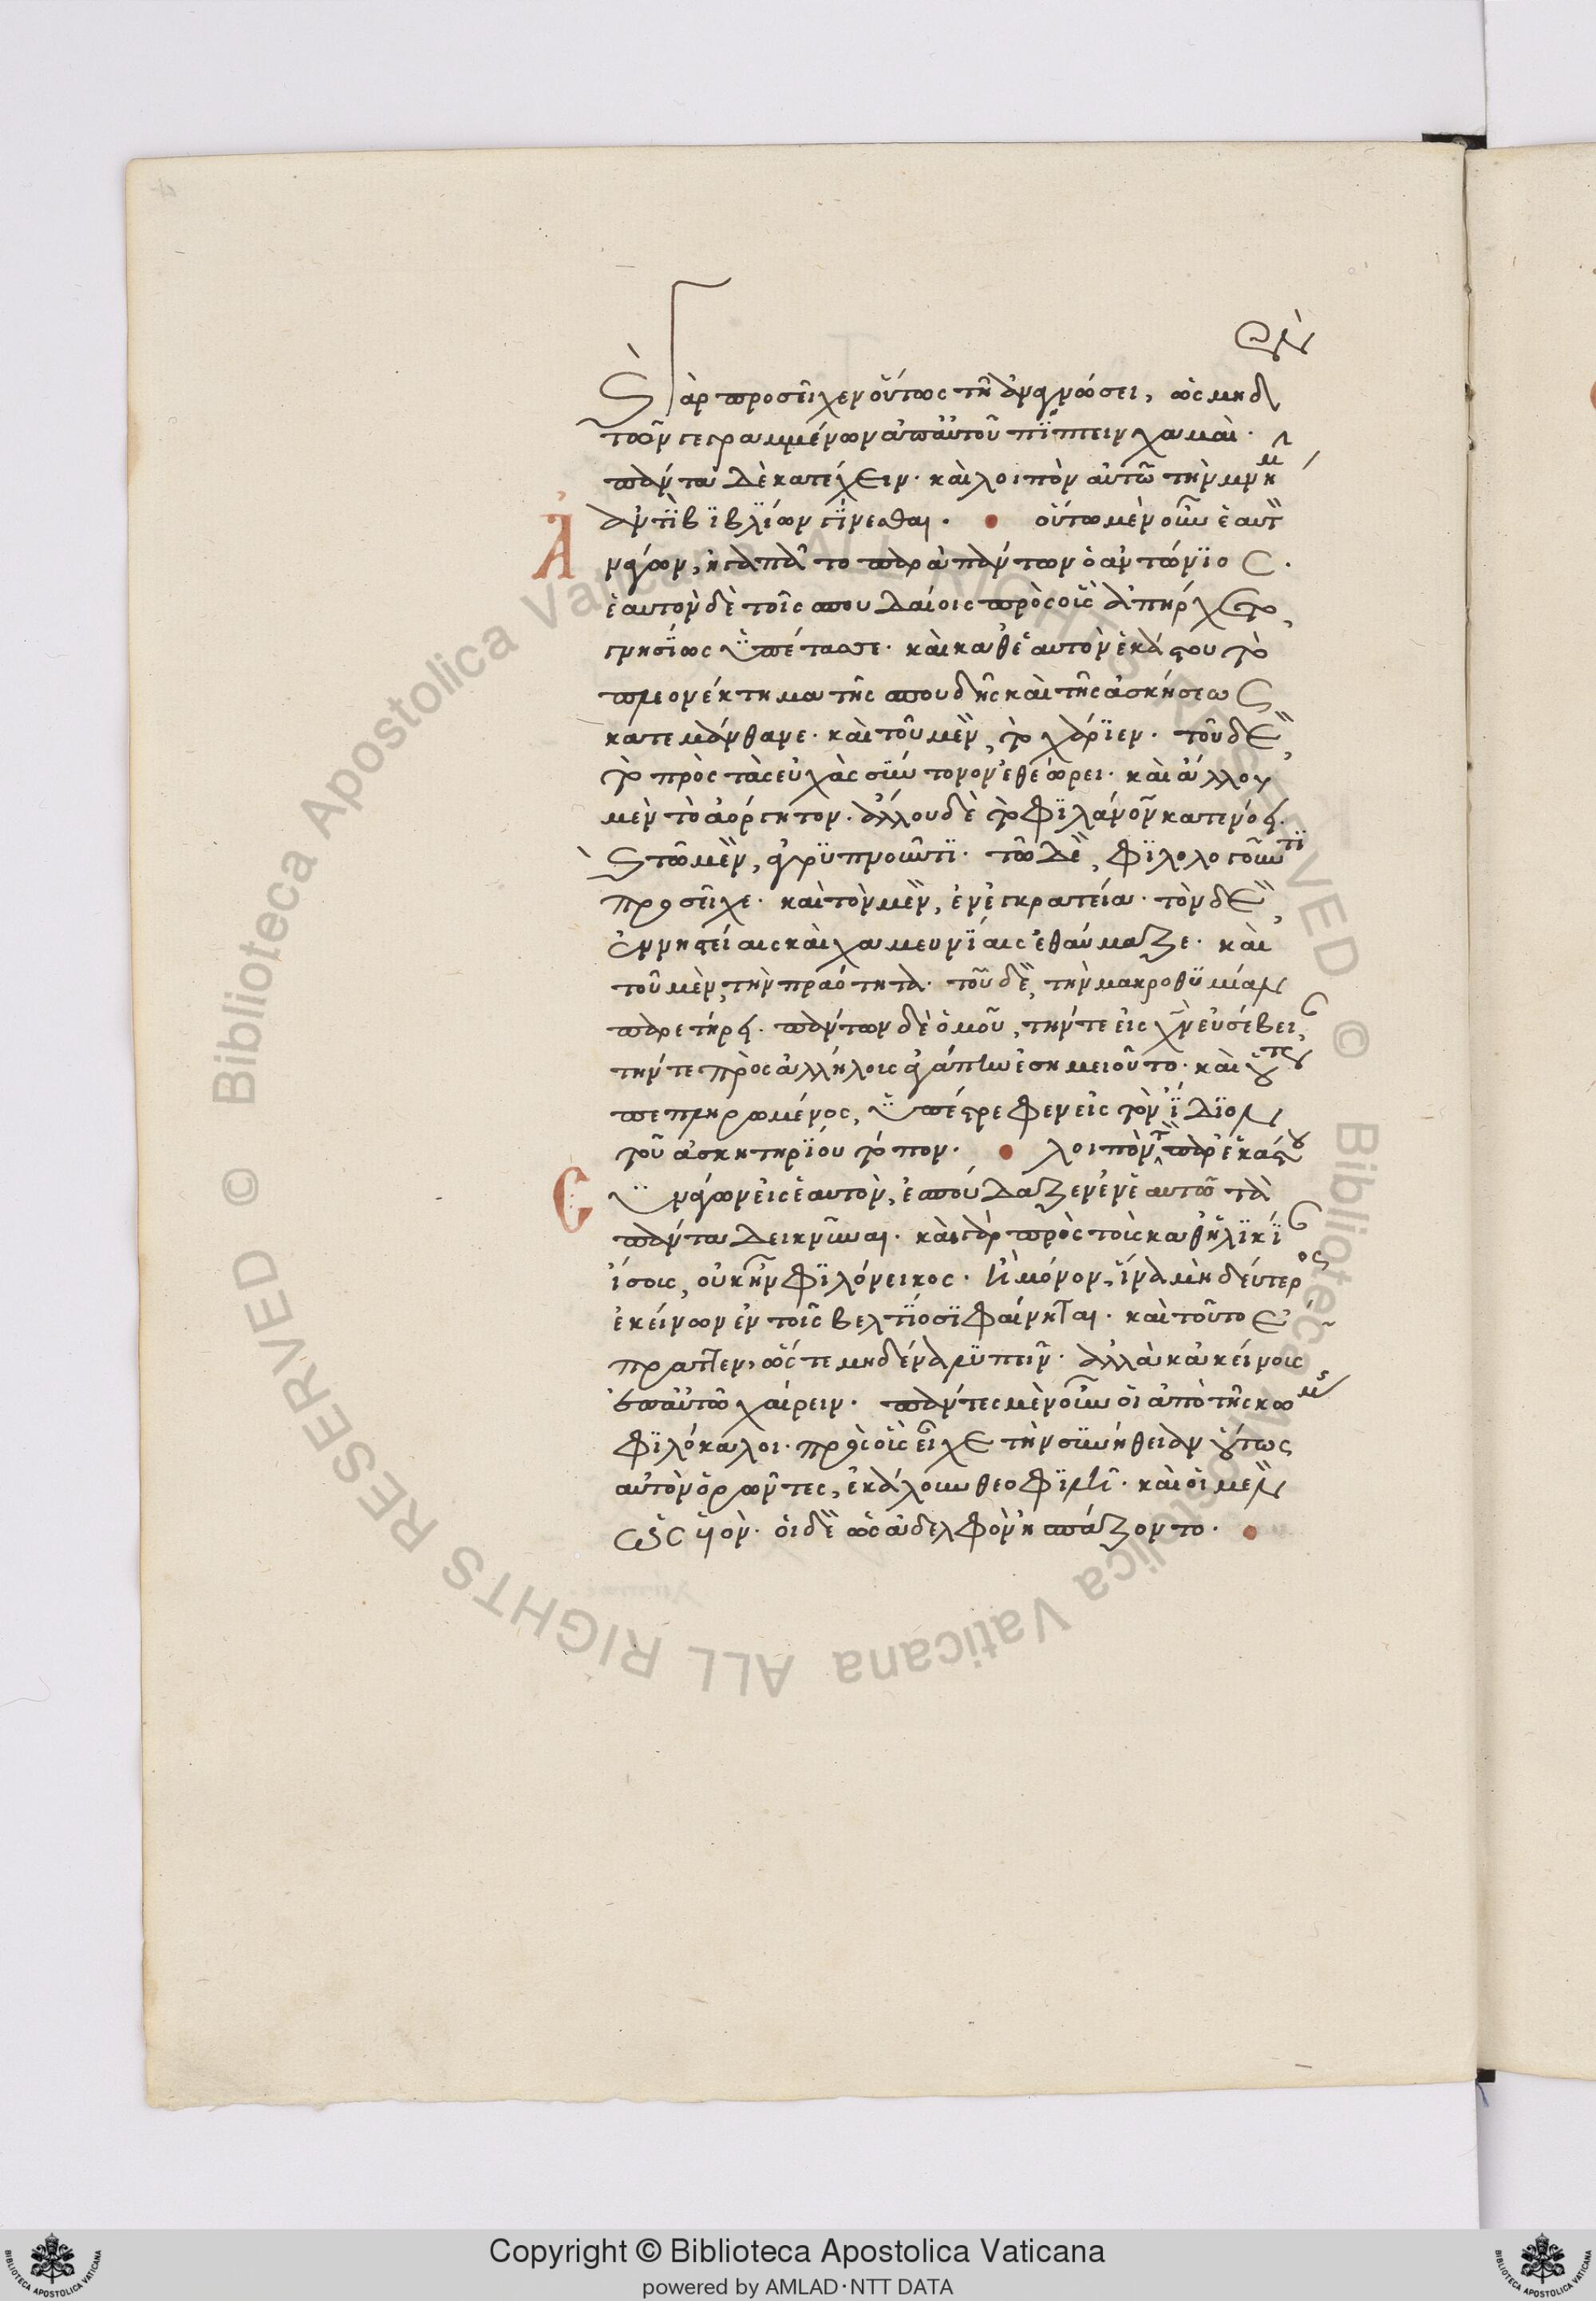 καὶ γὰρ προσεῖχεν οὕτως τῇ ἀναγνώσει, ὡς μηδὲν
τῶν γεγραμμένων ἀπ αὐτοῦ πίπτειν χαμαί·
πάντα δὲ κατέχειν· καὶ λοιπὸν αὐτῶ τὴν μνήμην
ἀντὶ βιβλίων γίνεσθαι· οὕτω μὲν οὖν ἑαυτὸν
ἄγων, ἠγαπᾶτο παρὰ πάντων ὁ ἀντώνιος.
ἑαυτὸν δὲ τοῖς σπουδαίοις πρὸς οὓς ἀπήρχετο,
γνησίως ὑπέτασσε· καὶ καθ ἑαυτὸν ἑκάστου τὸ
πλεονέκτημα τῆς σπουδῆς καὶ τῆς ἀσκήσεως
κατεμάνθανε· καὶ τοῦ μὲν, τὸ χαρίεν· τοῦ δὲ,
τὸ πρὸς τὰς εὐχὰς σύντονον ἐθεώρει· καὶ ἄλλου
μὲν τὸ ἀόργητον· ἄλλου δὲ τὸ φιλάνον κατενόει·
καὶ τῶ μὲν, ἀγρυπνοῦντι· τῶ δὲ, φιλολογοῦντι
προσεῖχε· καὶ τὸν μὲν, ἐν ἐγκρατεία· τὸν δὲ,
ἐν νηστείαις καὶ χαμευνίαις ἐθαύμαζε· καὶ
τοῦ μὲν, τὴν πραότητα· τοῦ δὲ, τὴν μακροθυμίαν
παρετήρει· πάντων δὲ ὁμοῦ, τήν τε εἰς χν εὐσέβειαν,
τήν τε πρὸς ἀλλήλοις ἀγάπην ἐσημειοῦτο· καὶ οὕτω
πεπληρωμένος, ὑπέστρεφεν εἰς τὸν ἴδιον
τοῦ ἀσκητηρίου τόπον· λοιπὸν τὰ παρ ἑκάστου
συνάγων εἰς ἑαυτὸν, ἐσπούδαζεν ἐν ἑαυτῶ τὰ
πάντα δεικνῦναι· καὶ γὰρ πρὸς τοὺς καθ ἡλικίαν
ἴσους, οὐκ ἦν φιλόνεικος· εἰ μὴ μόνον, ἵνα μὴ δεύτερος
ἐκείνων ἐν τοῖς βελτίοσι φαίνηται· καὶ τοῦτο ἔ
πραττεν, ὥστε μηδένα λυπεῖν· ἀλλὰ κἀκείνους
ἐπ αὐτῶ χαίρειν· πάντες μὲν οὖν οἱ ἀπὸ τῆς κώμης
φιλόκαλοι· πρὸς οὓς εἶχε τὴν συνήθειαν οὕτως
αὐτὸν ὁρῶντες, ἐκάλουν θεοφιλῆ· καὶ οἱ μὲν
ὡς υἱὸν· οἱ δὲ ὡς ἀδελφὸν ἠσπάζοντο·